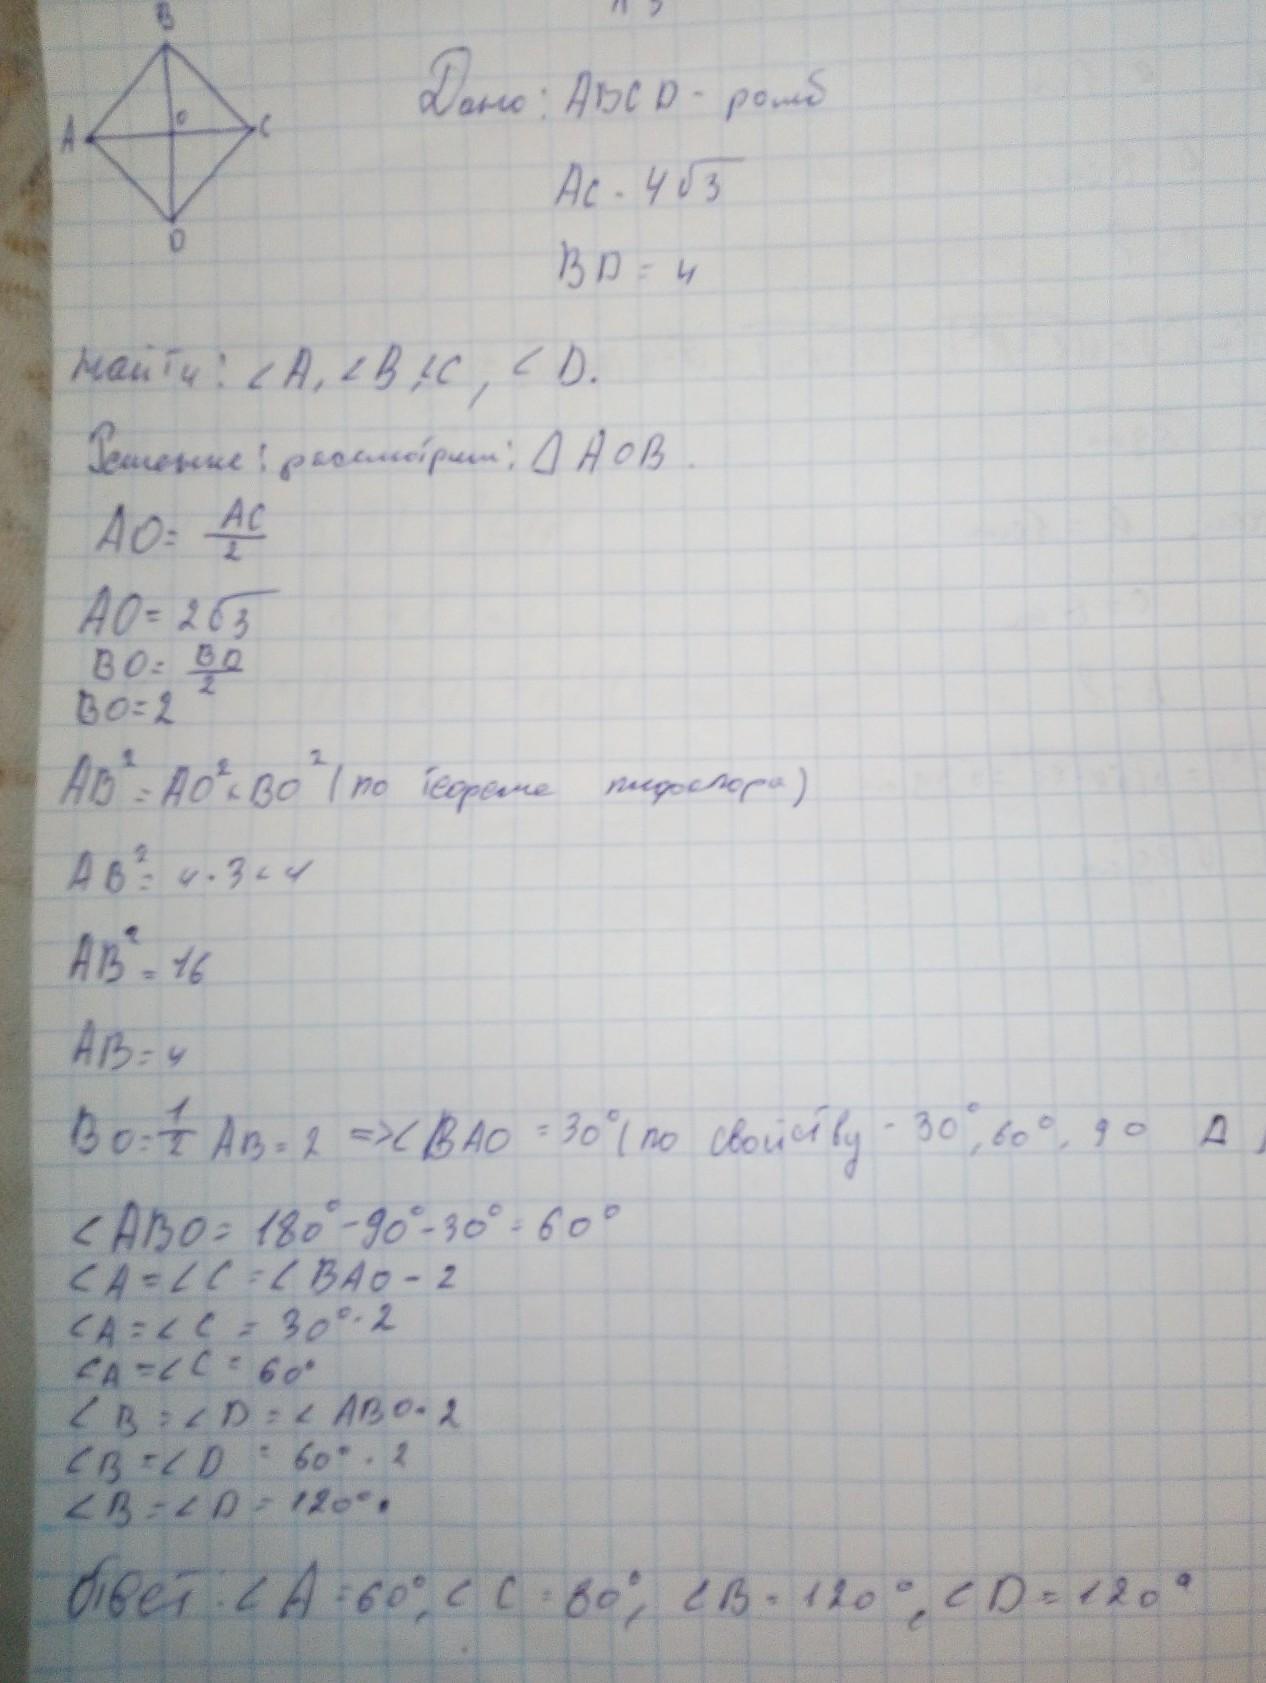 B
A
O
C
D
Дано: ABCD - ромб
AC - 4√3
BD = 4
Найти: ∠A, ∠B, ∠C, ∠D.
Решение: рассмотрим: △AOB.
AO = AC/2
AO = 2√3
BO = BD/2
BO = 2
AB² = AO² + BO² (по теореме пифагора)
AB² = 4·3 + 4
AB² = 16
AB = 4
BO = 1/2 AB = 2 => ∠BAO = 30° (по свойству - 30°, 60°, 90 △)
∠ABO = 180° - 90° - 30° = 60°
∠A = ∠C = ∠BAO · 2
∠A = ∠C = 30° · 2
∠A = ∠C = 60°
∠B = ∠D = ∠ABO · 2
∠B = ∠D = 60° · 2
∠B = ∠D = 120°.
Ответ: ∠A = 60°, ∠C = 60°, ∠B = 120°, ∠D = 120°